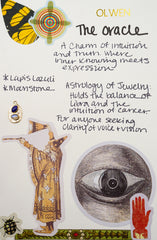 OLWEN
The oracle
A Charm of intuition
and Truth where
inner knowing meets
expression
* Lapis Lazuli
* Moonstone
Astrology of Jewelry:
Holds the balance of
Libra and the
intuition of cancer
For anyone seeking
clarity of voice & vision